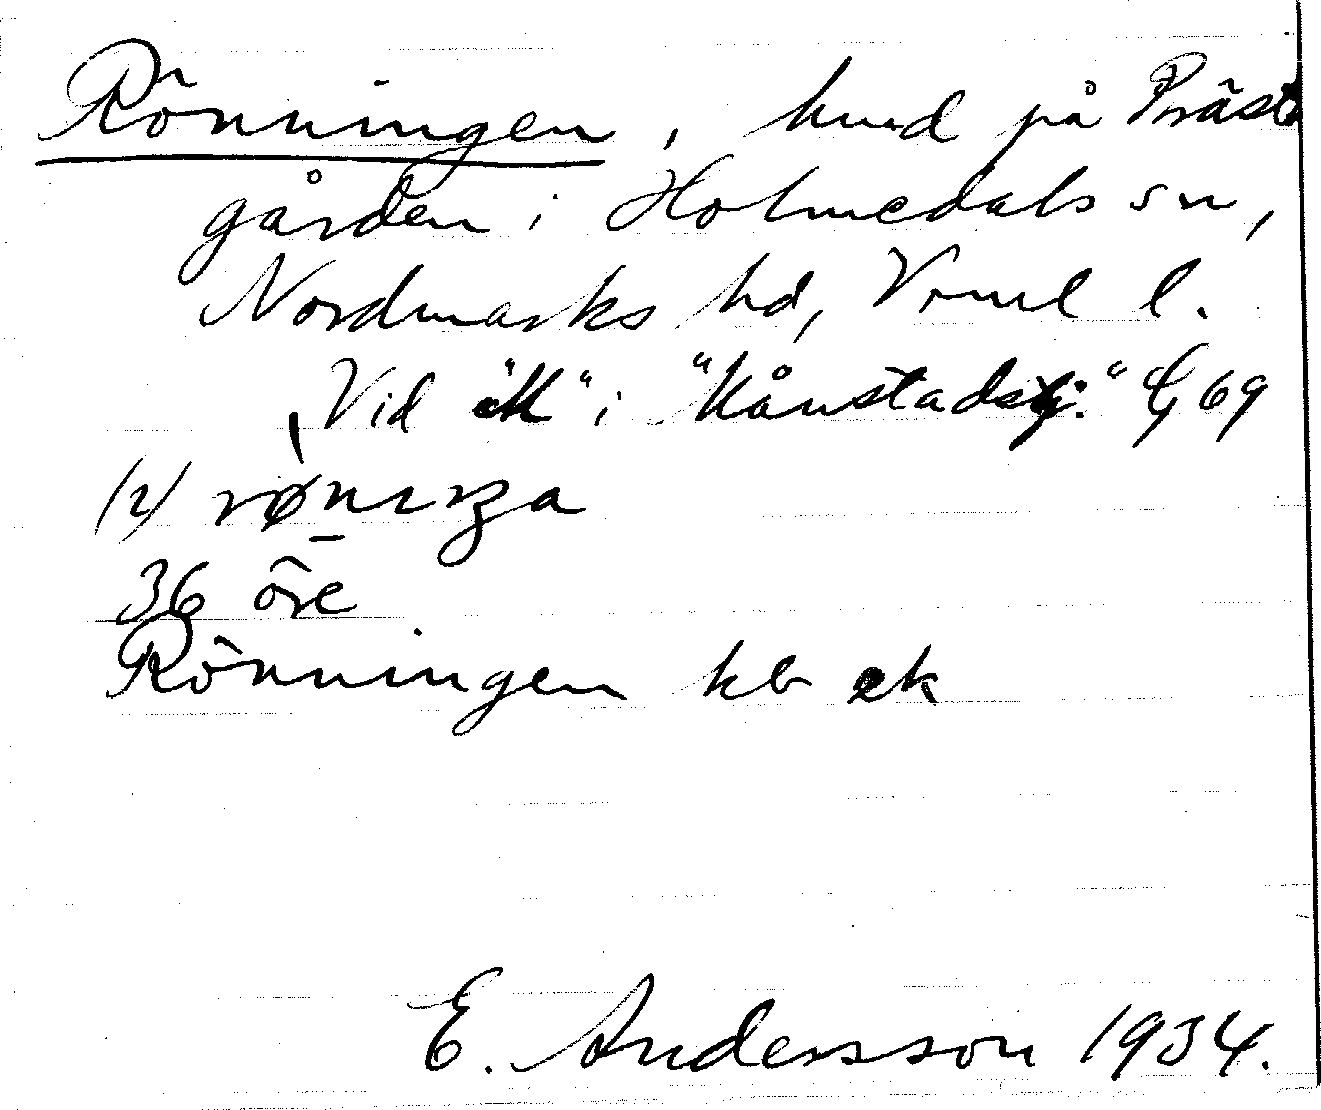 Rönningen, hmd på Präst
gården i Holmedals sn,
Nordmarks hd, Vrml l.
Vid "M" i "Kånstadsg:" G 69
/2/ rønıŋa
36 öre
Rönningen kb ek
E. Andersson 1934.